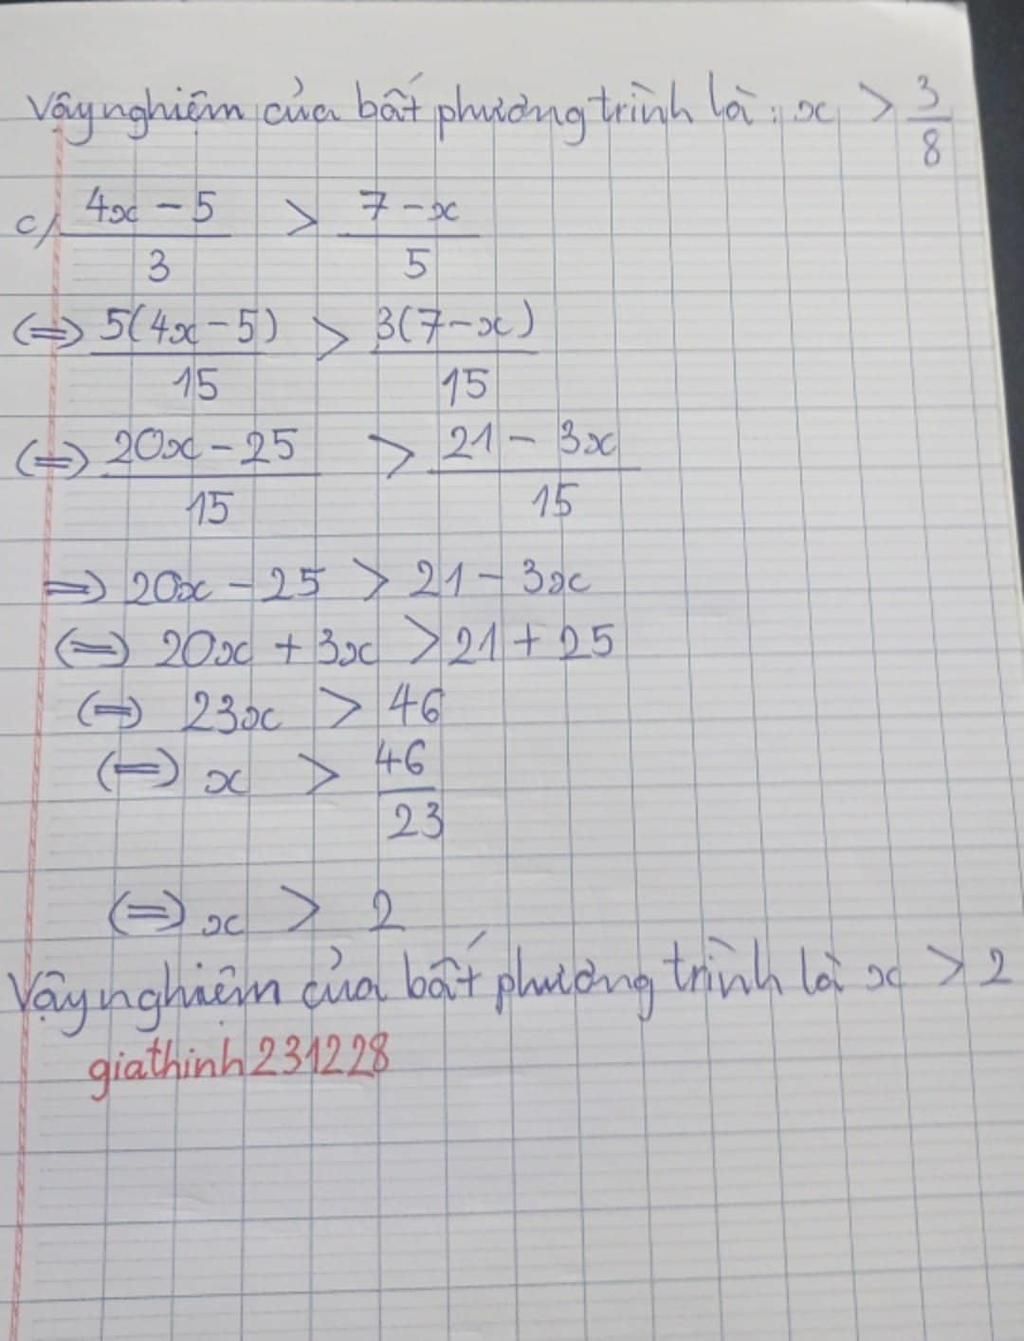 Vậy nghiệm của bất phương trình là: x > 3/8
c/ (4x - 5)/3 > (7 - x)/5
(=) 5(4x - 5)/15 > 3(7 - x)/15
(=) (20x - 25)/15 > (21 - 3x)/15
=) 20x - 25 > 21 - 3x
(=) 20x + 3x > 21 + 25
(=) 23x > 46
(=) x > 46/23
(=) x > 2
Vậy nghiệm của bất phương trình là x > 2
giathinh231228